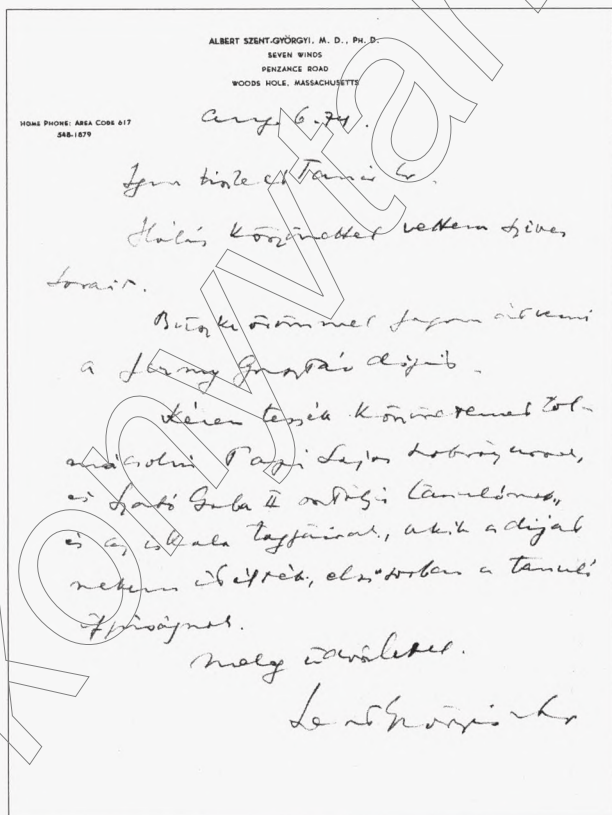 ALBERT SZENT-GYÖRGYI, M. D., PH. D.
SEVEN WINDS
PENZANCE ROAD
WOODS HOLE, MASSACHUSETTS
HOME PHONE: AREA CODE 617
548-1879
Aug 6. 74.
Igen tisztelt Tanár Úr.
Hálás köszönettel vettem szives
sorait.
Büszke örömmel fogom átvenni
a Jármy Gusztáv díját.
Kérem tessék köszönetemet tol-
mácsolni Papi Lajos szobrásznak,
és Szabó Gabi II osztályú tanulónak,
és az iskola tagjainak, akik a díjat
nekem itélték, elsősorban a tanuló
ifjúságnak.
Meleg üdvözlettel.
Szent-Györgyi
könyvtár